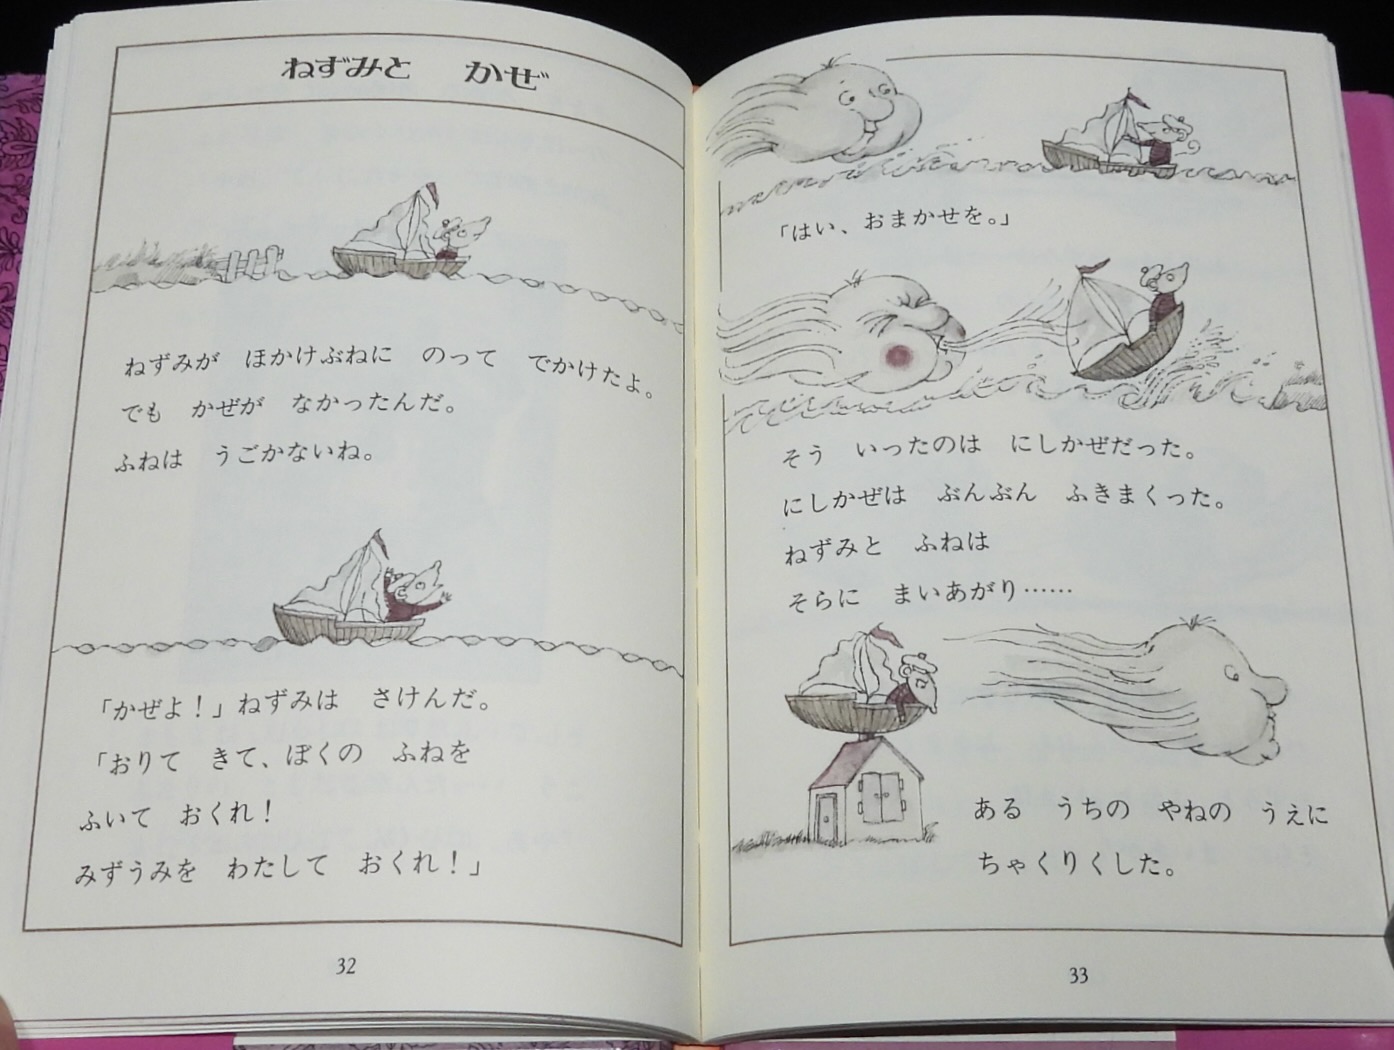 ねずみと　かぜ
ねずみが　ほかけぶねに　のって　でかけたよ。
でも　かぜが　なかったんだ。
ふねは　うごかないね。
「かぜよ！」ねずみは　さけんだ。
「おりて　きて、ぼくの　ふねを
ふいて　おくれ！
みずうみを　わたして　おくれ！」
32
「はい、おまかせを。」
そう　いったのは　にしかぜだった。
にしかぜは　ぶんぶん　ふきまくった。
ねずみと　ふねは
そらに　まいあがり……
ある　うちの　やねの　うえに
ちゃくりくした。
33